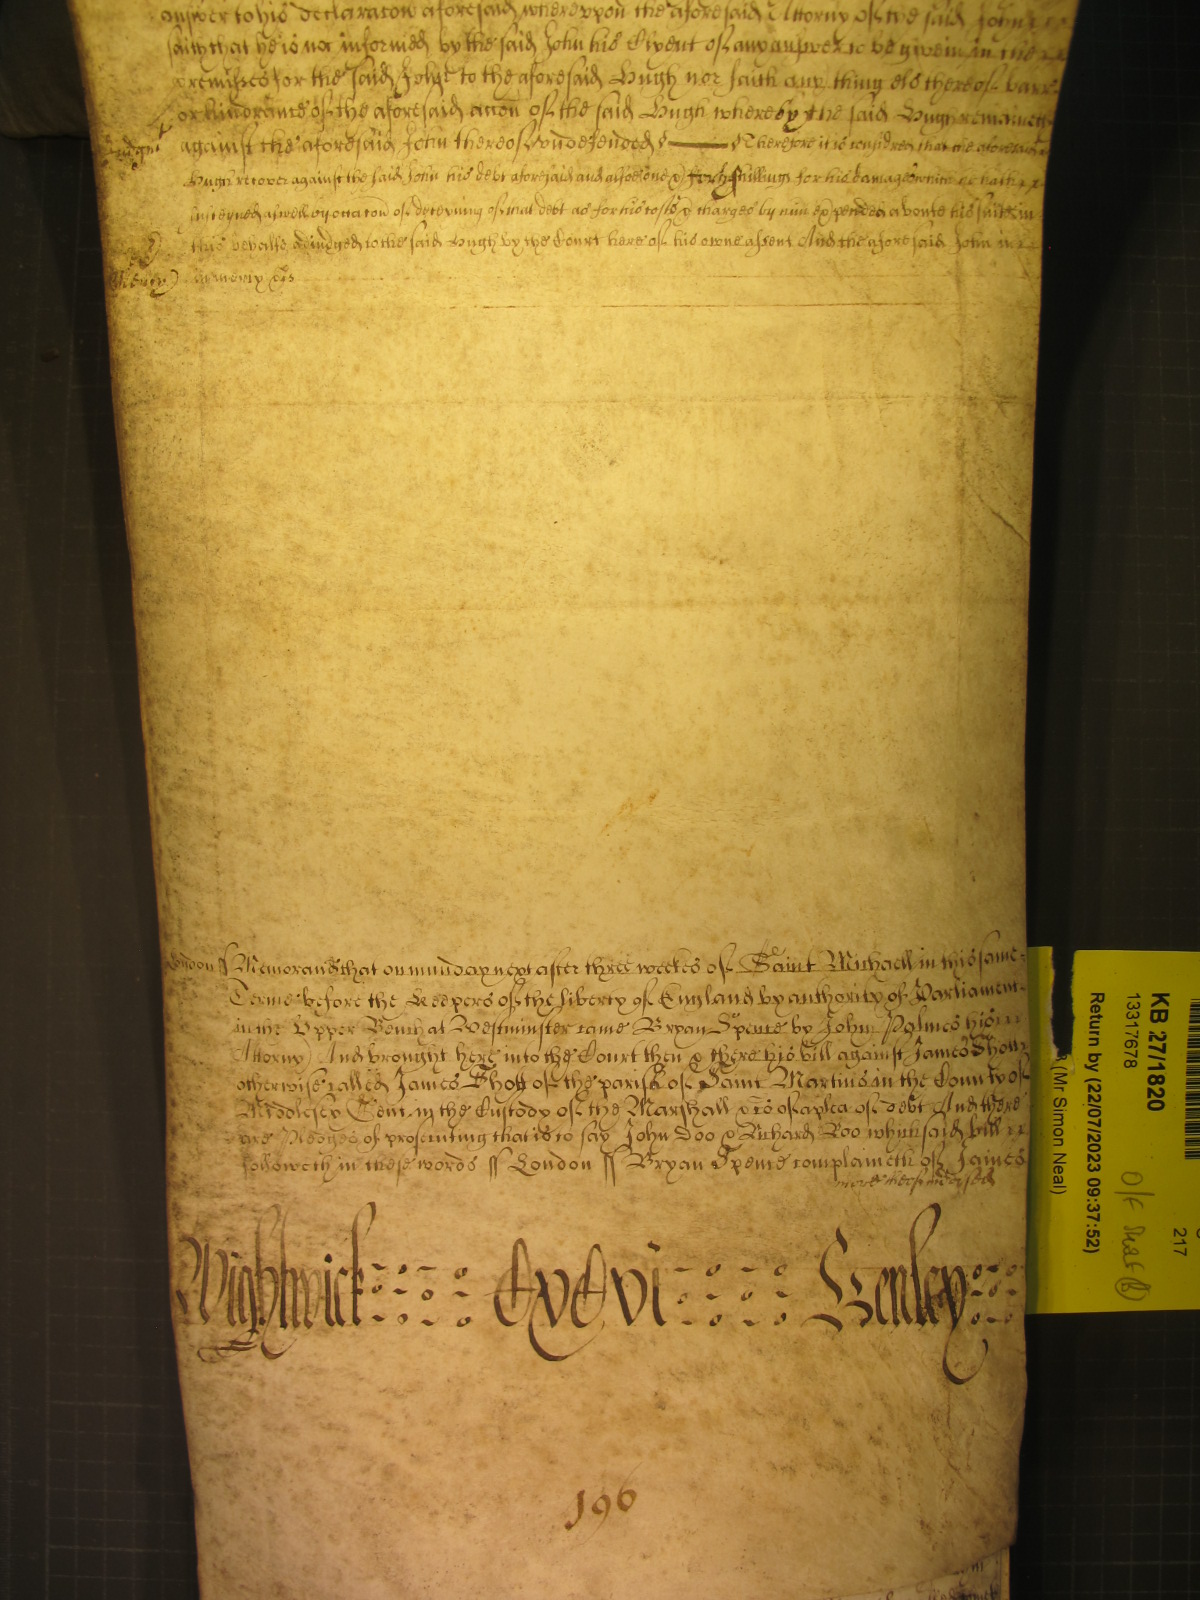 answer to his declaracon aforesaid whereupon the aforesaid Attorny of the said John
saith that he is not informed by the said John his Clyent of any answer to be given in the
premisses for the said John to the aforesaid Hugh nor saith any thing els thereof barr
or hindrance of the aforesaid accon of the said Hugh whereby the said Hugh remaineth
against the aforesaid John thereof undefended &c Therefore it is considred that the aforesaid
Judgmt
Hugh recover against the said John his debt aforesaid and alsoe one & forty shillings for his damages which he hath
susteyned aswell by occacon of deteyning of that debt as for his costs & charges by him expended about his suite in
this behalfe adjudged to the said Hugh by the Court here of his owne assent And the aforesaid John in
Mercy
in mercy &c
London ss Memorand that on munday next after three weekes of Saint Michaell in this same
Terme before the Keepers of the liberty of England by authority of Parliament
in the Upper Bench at Westminster came Bryan Spence by John Palmes his
Attorny And brought here into the Court then & there his bill against James Shott
otherwise called James Shott of the parish of Saint Martins in the County of
Middlesex Gent in the Custody of the Marshall &c of a plea of debt And there
are Pledges of prosecuting that is to say John Doo & Richard Roo which said bill
followeth in these words ss London ss Bryan Spence complaineth of James
Wightwick CxCvi Henley
196
KB 27/1820
13317678
Return by (22/07/2023 09:37:52)
(Mr Simon Neal)
217